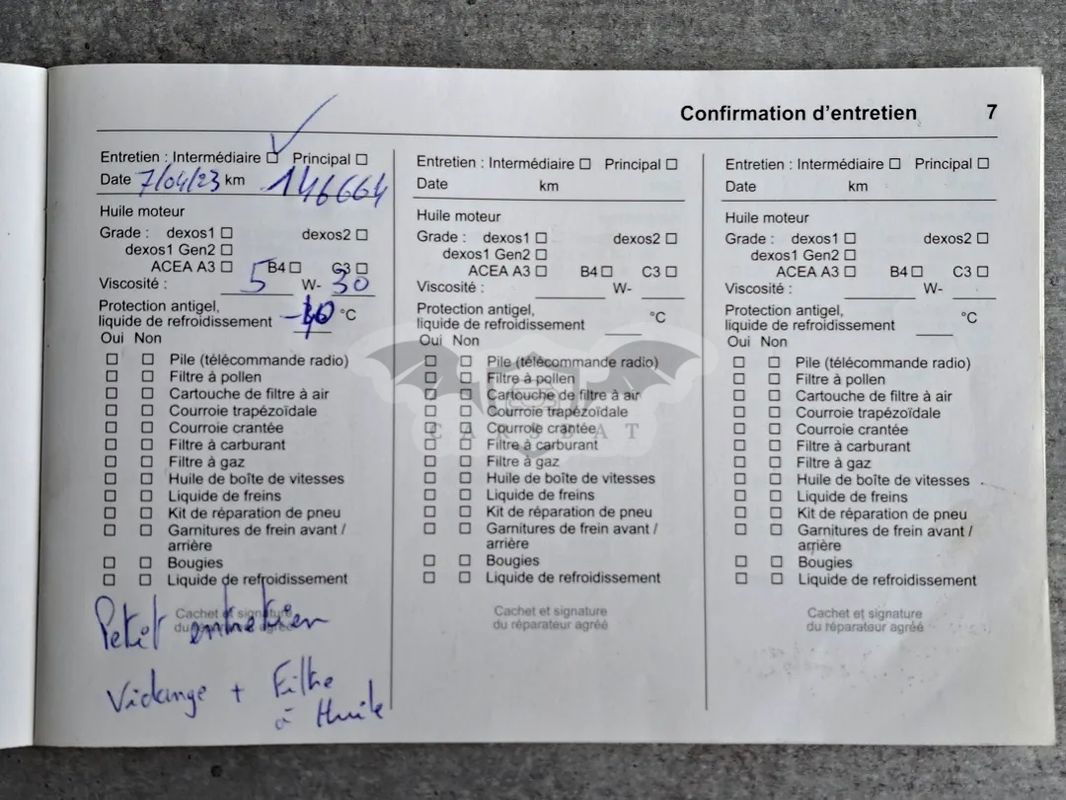 Confirmation d'entretien 7
Entretien : Intermédiaire ☐ Principal ☐
Date 7/04/23 km 146664
Huile moteur
Grade : dexos1 ☐ dexos2 ☐
dexos1 Gen2 ☐
ACEA A3 ☐ B4 ☐ C3 ☐
Viscosité : 5 W- 30
Protection antigel,
liquide de refroidissement °C
Oui Non
☐ ☐ Pile (télécommande radio)
☐ ☐ Filtre à pollen
☐ ☐ Cartouche de filtre à air
☐ ☐ Courroie trapézoïdale
☐ ☐ Courroie crantée
☐ ☐ Filtre à carburant
☐ ☐ Filtre à gaz
☐ ☐ Huile de boîte de vitesses
☐ ☐ Liquide de freins
☐ ☐ Kit de réparation de pneu
☐ ☐ Garnitures de frein avant /
arrière
☐ ☐ Bougies
☐ ☐ Liquide de refroidissement
Cachet et signature
du réparateur agréé
Petit entretien
Vidange + Filtre
à Huile
Entretien : Intermédiaire ☐ Principal ☐
Date km
Huile moteur
Grade : dexos1 ☐ dexos2 ☐
dexos1 Gen2 ☐
ACEA A3 ☐ B4 ☐ C3 ☐
Viscosité : W-
Protection antigel,
liquide de refroidissement °C
Oui Non
☐ ☐ Pile (télécommande radio)
☐ ☐ Filtre à pollen
☐ ☐ Cartouche de filtre à air
☐ ☐ Courroie trapézoïdale
☐ ☐ Courroie crantée
☐ ☐ Filtre à carburant
☐ ☐ Filtre à gaz
☐ ☐ Huile de boîte de vitesses
☐ ☐ Liquide de freins
☐ ☐ Kit de réparation de pneu
☐ ☐ Garnitures de frein avant /
arrière
☐ ☐ Bougies
☐ ☐ Liquide de refroidissement
Cachet et signature
du réparateur agréé
Entretien : Intermédiaire ☐ Principal ☐
Date km
Huile moteur
Grade : dexos1 ☐ dexos2 ☐
dexos1 Gen2 ☐
ACEA A3 ☐ B4 ☐ C3 ☐
Viscosité : W-
Protection antigel,
liquide de refroidissement °C
Oui Non
☐ ☐ Pile (télécommande radio)
☐ ☐ Filtre à pollen
☐ ☐ Cartouche de filtre à air
☐ ☐ Courroie trapézoïdale
☐ ☐ Courroie crantée
☐ ☐ Filtre à carburant
☐ ☐ Filtre à gaz
☐ ☐ Huile de boîte de vitesses
☐ ☐ Liquide de freins
☐ ☐ Kit de réparation de pneu
☐ ☐ Garnitures de frein avant /
arrière
☐ ☐ Bougies
☐ ☐ Liquide de refroidissement
Cachet et signature
du réparateur agréé
CARSBAT